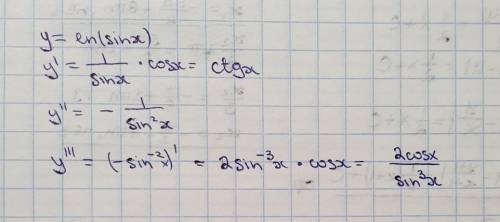 y = ln(sinx)
y' = 1/sinx · cosx = ctgx
y'' = - 1/sin²x
y''' = (-sin⁻²x)' = 2sin⁻³x · cosx = 2cosx/sin³x